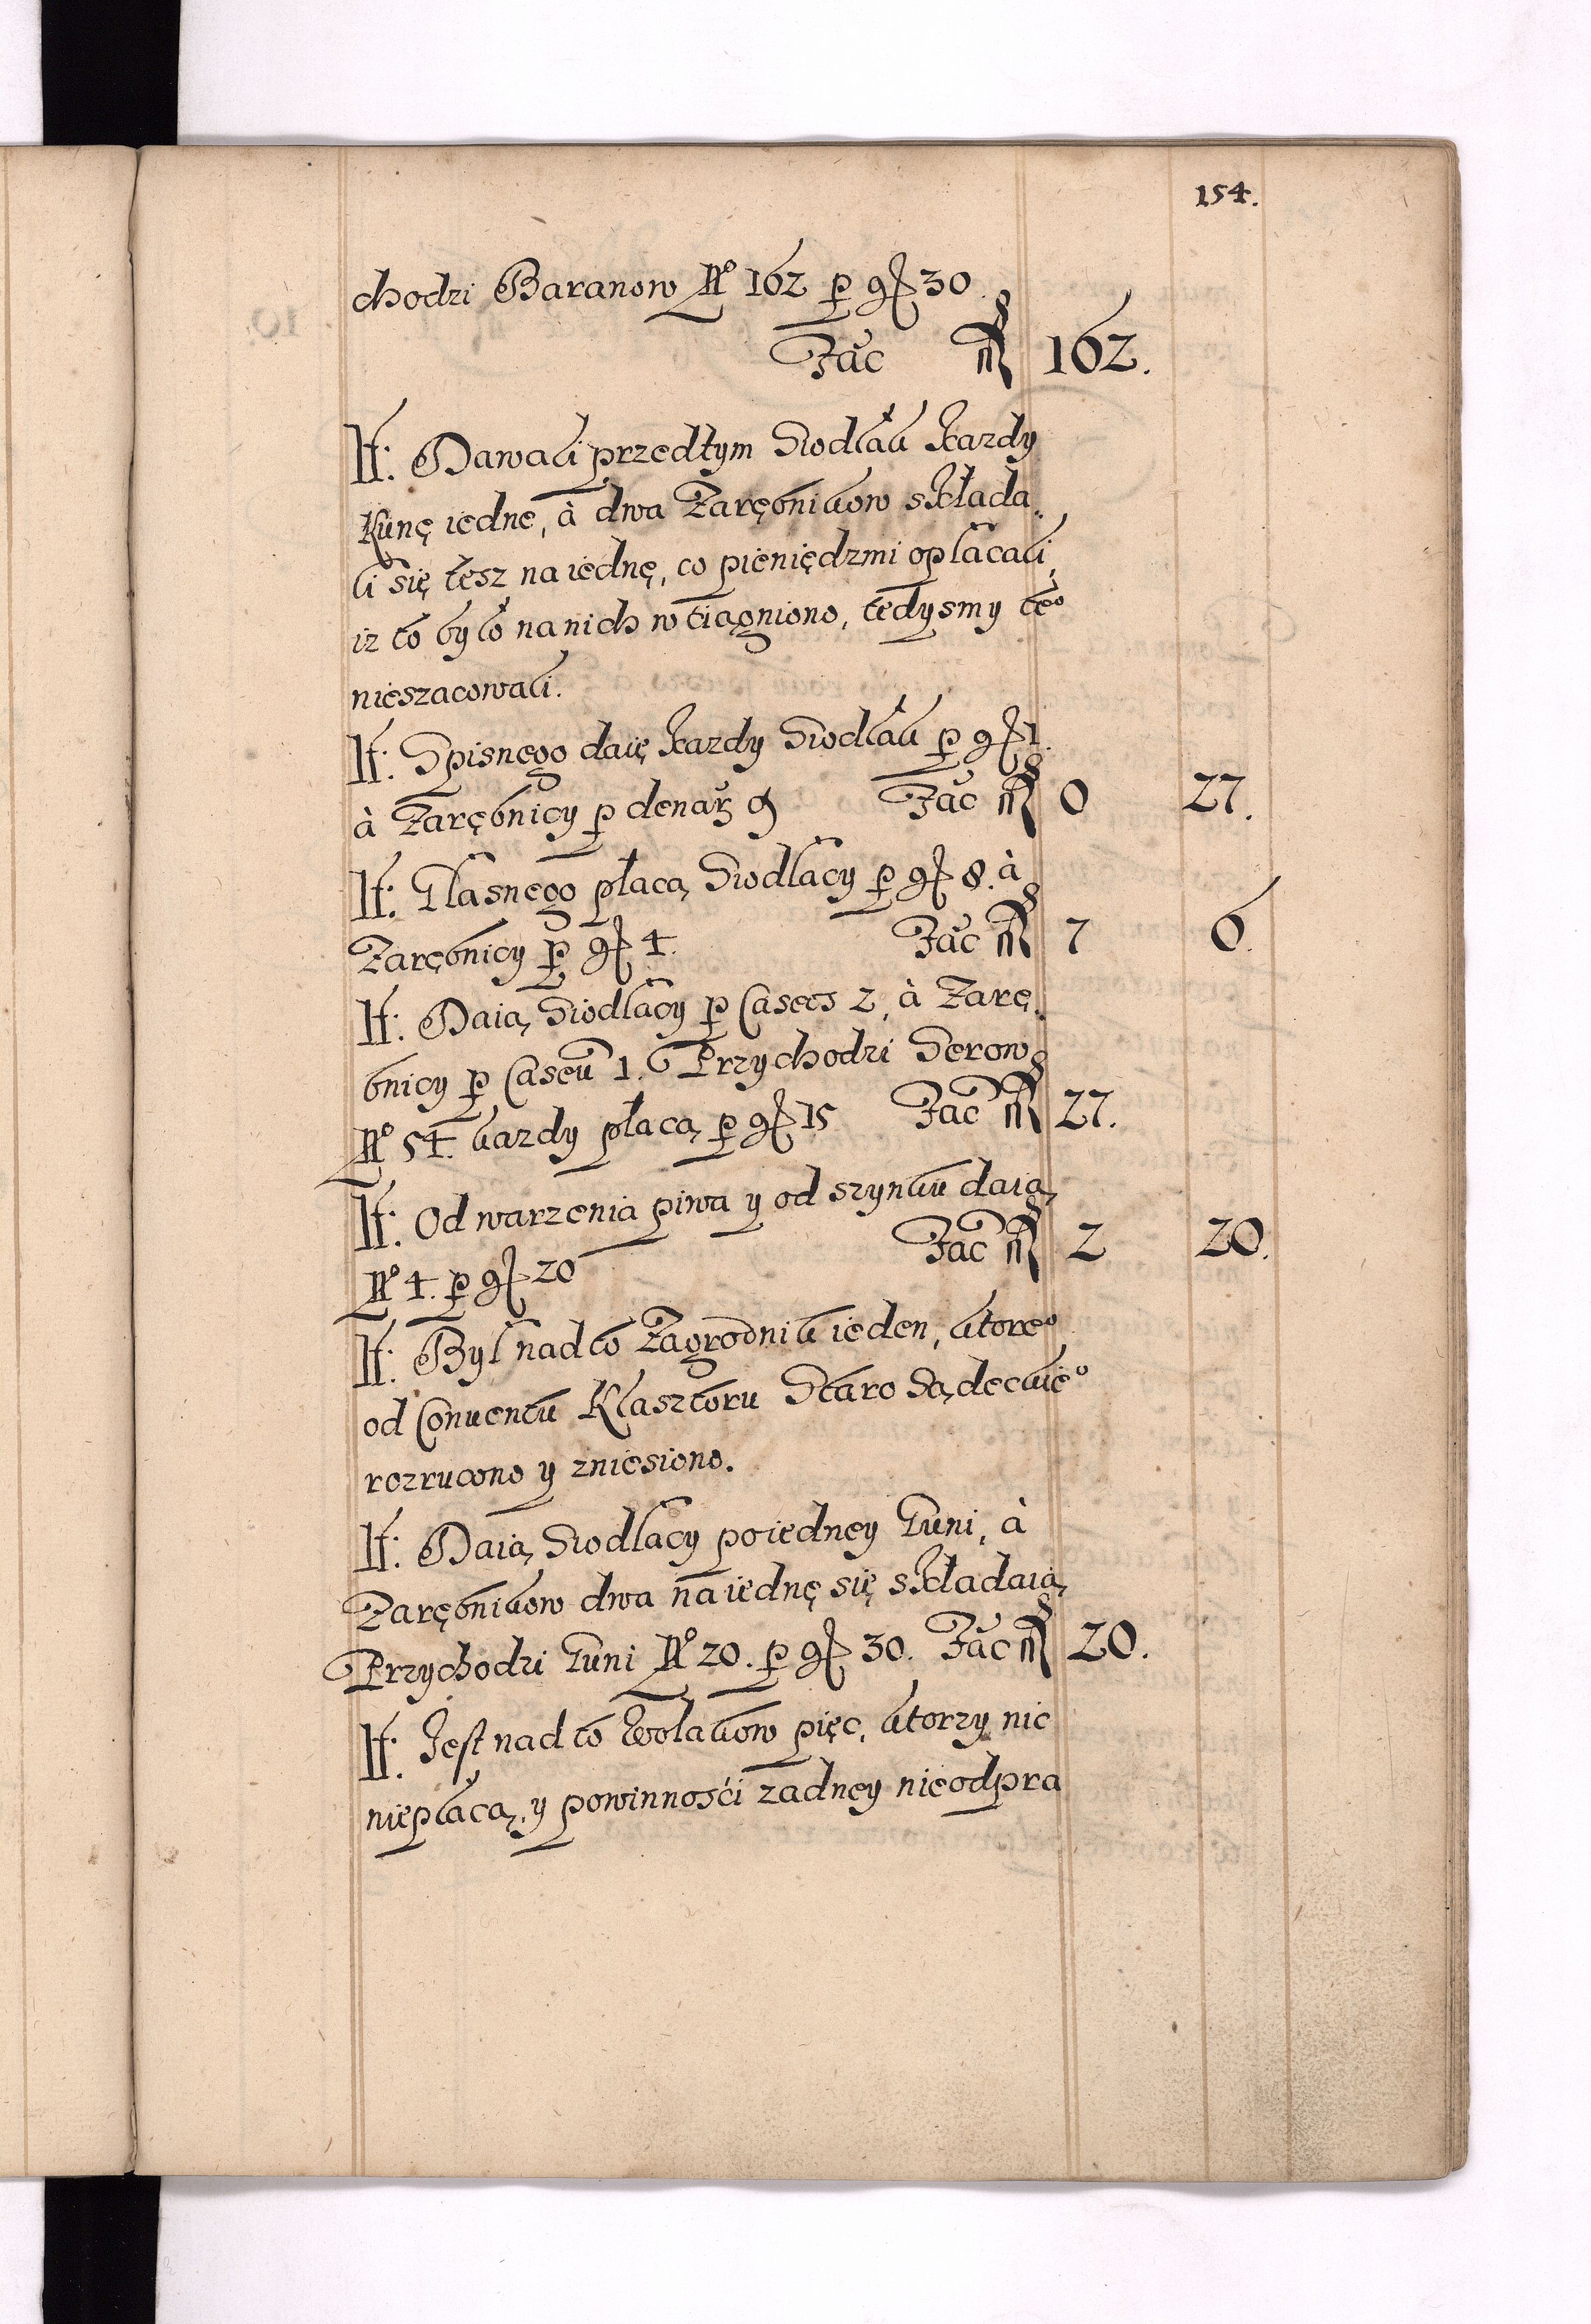 154.
chodzi Baranow N° 162 p gr 30
Fac fl 162.
It: Dawali przedtym Siodlak kazdy
Kunę iedne, à dwa Zarębnikow składa
li się tesz na iednę, co pieniędzmi oplacali,
iz to było na nich wciagniono, tedysmy te°
nieszacowali.
It: Spisnego daię kazdy Siodlak p gr 1.
à Zarębnicy p denar 9 Fac fl 0 27.
It: Tlasnego płacą Siodlacy p gr 8. à
Zarębnicy p gr 4. Fac fl 7 6.
It: Daią Siodlacy p Casees 2, à Zarę
bnicy p Caseū 1. Przychodzi Serow
N° 54. kazdy płacą p gr 15 Fac fl 27.
It: Od warzenia piwa y od szynku daią
N° 4. p gr 20 Fac fl 2 20.
It: Był nad to Zagrodnik ieden, ktore°
od Conuentu Klasztoru Staro Sądeckie°
rozrucono y zniesiono.
It: Daią Siodlacy po iedney kuni, à
Zarębnikow dwa na iednę się składaią
Przychodzi kuni N° 20. p gr 30. Fac fl 20.
It: Jest nad to kwolakow pięc, ktorzy nic
nieplacą, y powinnosći zadney nieodpra